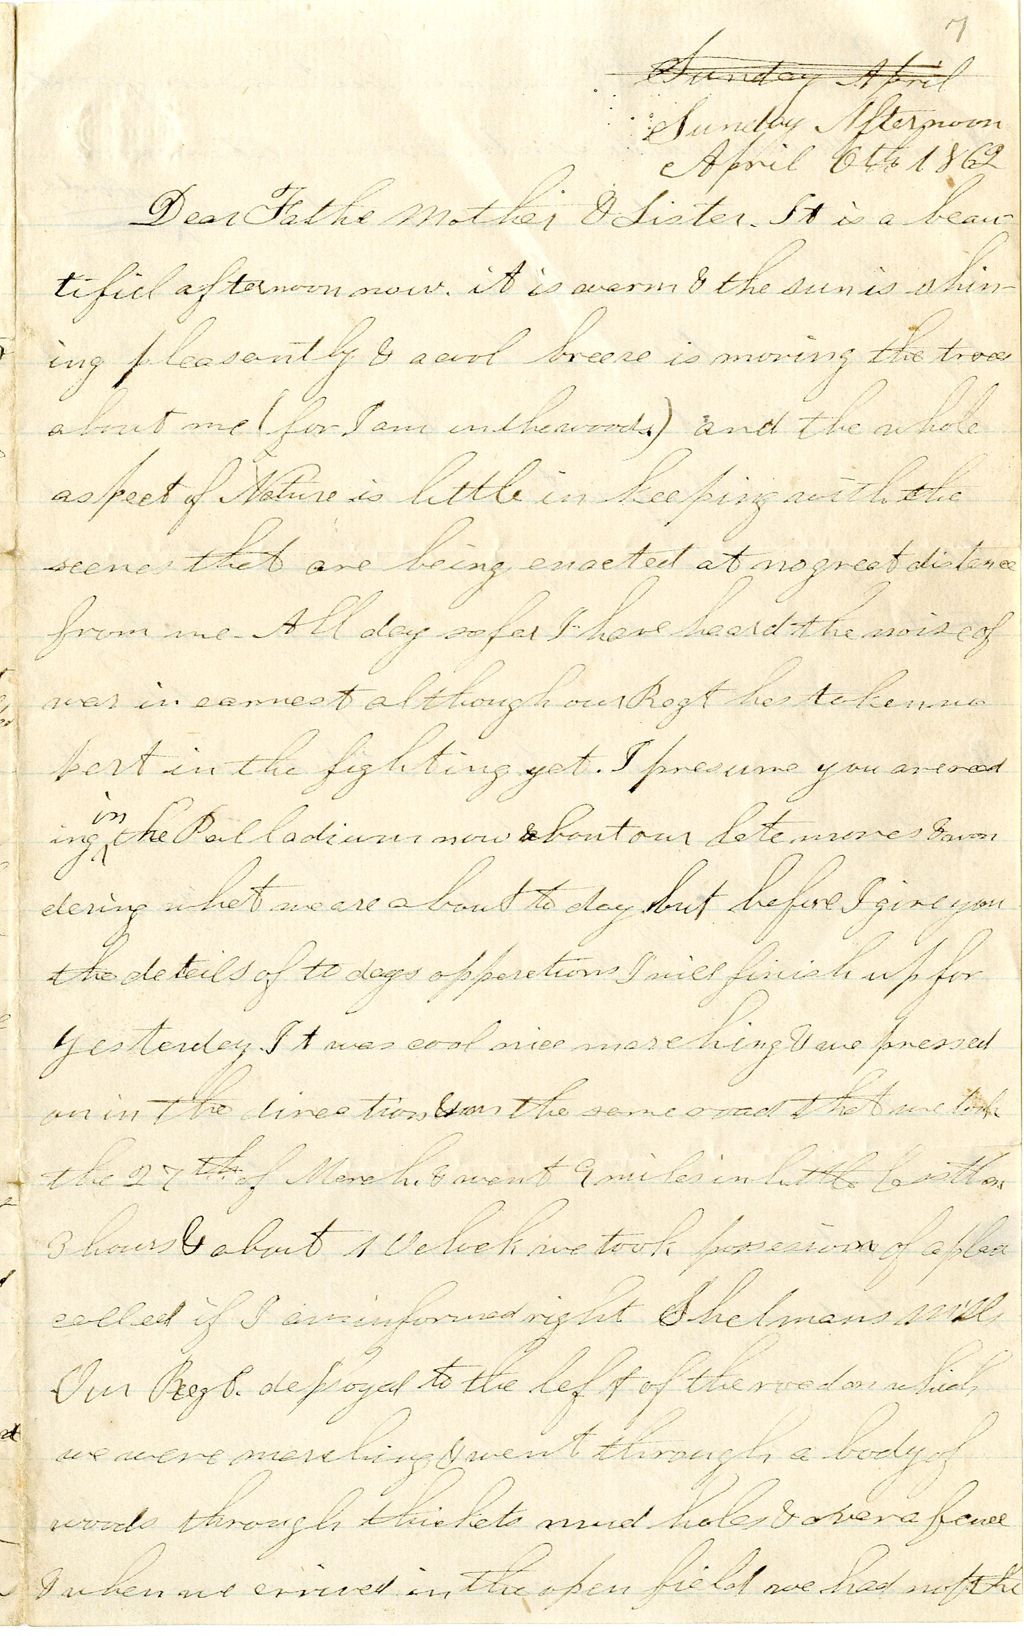 7
Sunday April
Sunday Afternoon
April 6th 1862
Dear Fathe Mother & Sister. It is a beau-
tiful afternoon now. it is warm & the sun is shin-
ing pleasantly & a cool breeze is moving the trees
about me (for I am in the woods.) and the whole
aspect of Nature is little in keeping with the
scenes that are being enacted at no great distance
from me. All day so far I have heard the noise of
war in earnest although our Regt has taken no
part in the fighting yet. I presume you are read
ing in the Palladium now about our late moves & won
dering what we are about to day but before I give you
the details of to days opperations I will finish up for
yesterday. It was cool nice marching & we pressed
on in the direction & on the same road that we took
the 27th of March. & went 9 miles in little less than
3 hours & about 1 Oclock we took possession of a place
called if I am informed right Shelmans Mills
Our Regt. deployed to the left of the road on which
we were marching & went through a body of
woods through thickets mud holes & over a fence
& when we arrived in the open field we had not the